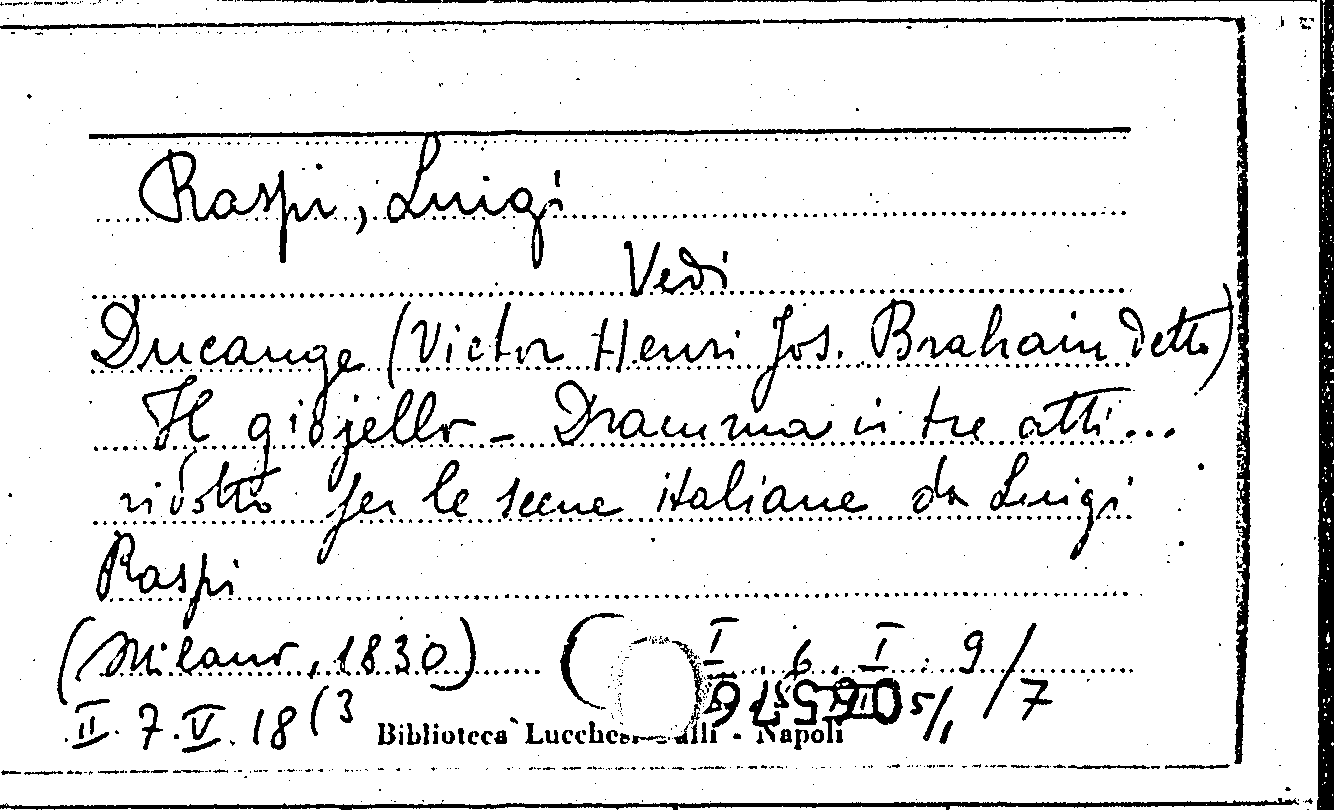 Raspi, Luigi
Vedi
Ducange (Victor Henri Jos. Brahain detto)
Il giojello - Dramma in tre atti...
ridotto per le scene italiane da Luigi
Raspi
(Milano, 1830) ( I. 6. I. 9/7
II. 7. V. 18 (3
Biblioteca Lucchesi Palli - Napoli